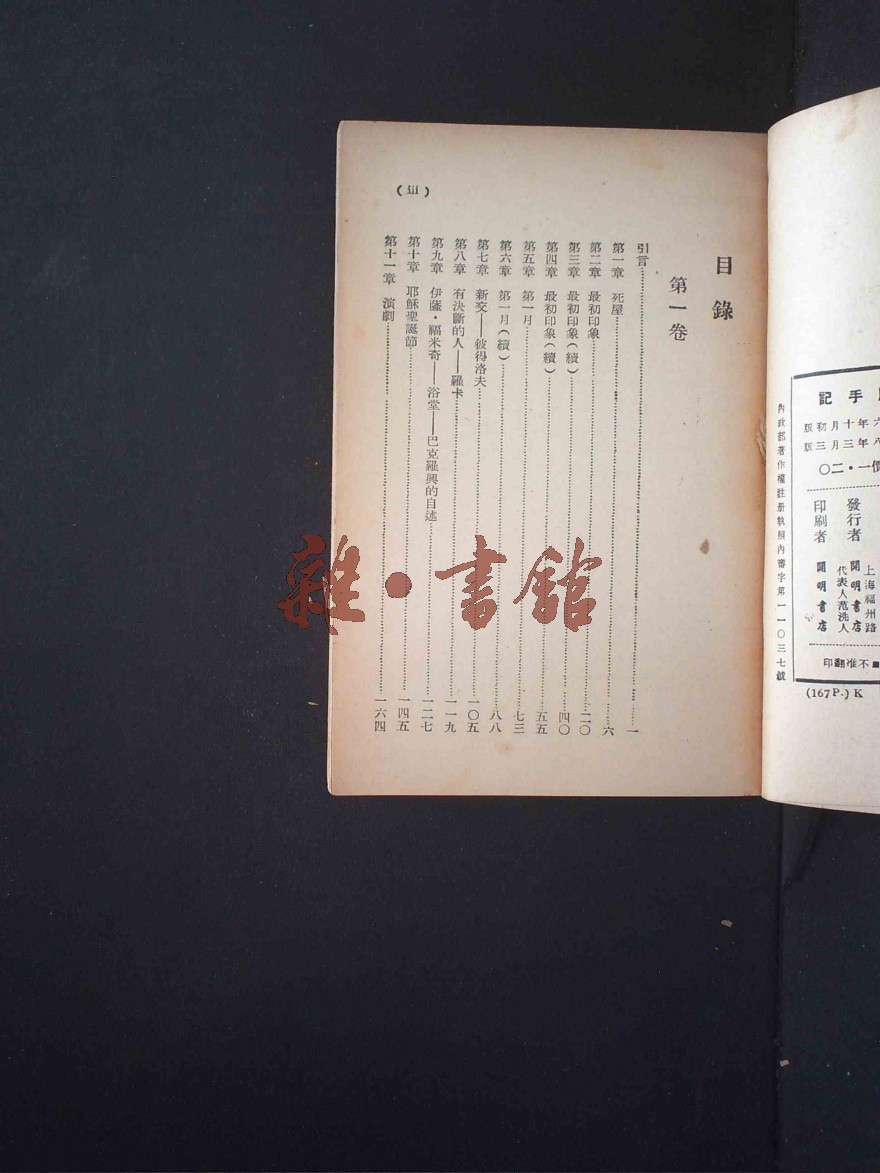 記手
版初月十年六
版三月三年八
〇二・一價
發行者
印刷者
上海福州路
開明書店
代表人范洗人
開明書店
印翻准不■
內政部著作權註册執照內審字第一一〇三七號
(167P.) K
(iii)
目錄
第一卷
引言……一
第一章 死屋……六
第二章 最初印象……二〇
第三章 最初印象(續)……四〇
第四章 最初印象(續)……五五
第五章 第一月……七三
第六章 第一月(續)……八八
第七章 新交——彼得洛夫……一〇五
第八章 有決斷的人——羅卡……一一九
第九章 伊薩・福米奇——浴堂——巴克羅興的自述……一二七
第十章 耶穌聖誕節……一四五
第十一章 演劇……一六四
雜・書館